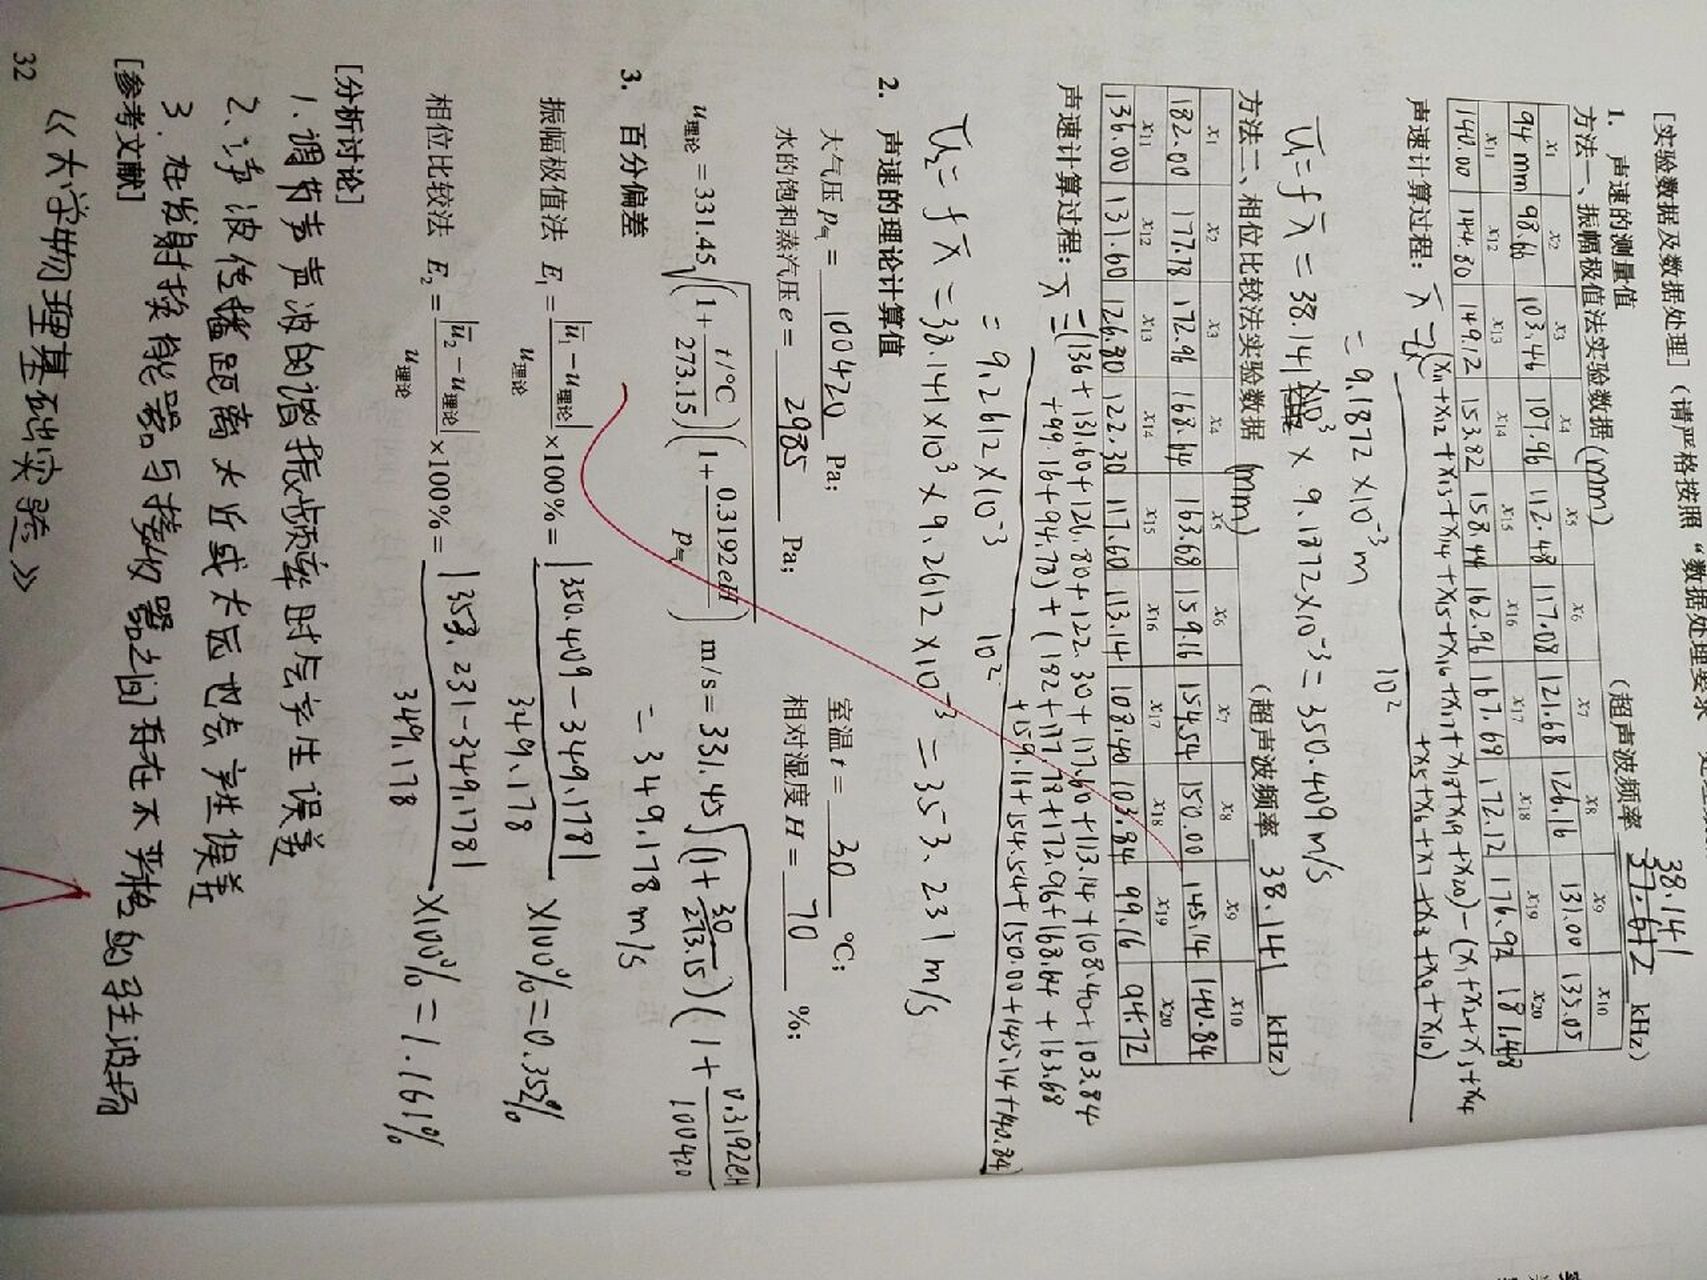 [实验数据及数据处理]（请严格按照“数据处理要求
1. 声速的测量值
方法一、振幅极值法实验数据(mm) （超声波频率 38.141 kHz）
x1 x2 x3 x4 x5 x6 x7 x8 x9 x10
94mm 98.66 103.46 107.96 112.48 117.08 121.68 126.16 131.00 135.05
x11 x12 x13 x14 x15 x16 x17 x18 x19 x20
140.00 144.30 149.12 153.82 158.44 162.96 167.68 172.12 176.92 181.48
声速计算过程：λ̄=2×(x11+x12+x13+x14+x15+x16+x17+x18+x19+x20)-(x1+x2+x3+x4
+x5+x6+x7+x8+x9+x10)
10²
=9.1872×10⁻³m
Ū1=fλ̄=38.141×10³×9.1872×10⁻³=350.409m/s
方法二、相位比较法实验数据 (mm) （超声波频率 38.141 kHz）
x1 x2 x3 x4 x5 x6 x7 x8 x9 x10
182.00 177.78 172.96 168.64 163.68 159.16 154.54 150.00 145.14 140.84
x11 x12 x13 x14 x15 x16 x17 x18 x19 x20
136.00 131.60 126.80 122.30 117.60 113.14 108.40 103.84 99.16 94.72
声速计算过程：λ̄=(136+131.60+126.80+122.30+117.60+113.14+108.40+103.84
+99.16+94.72)+(182+177.78+172.96+168.64+163.68
+159.11+154.54+150.00+145.14+140.84)
10²
=9.2612×10⁻³
Ū2=fλ̄=38.141×10³×9.2612×10⁻³=353.231m/s
2. 声速的理论计算值
大气压p气= 100420 Pa； 室温t= 30 ℃；
水的饱和蒸汽压e= 2985 Pa； 相对湿度H= 70 %；
u理论=331.45√(1+t/℃/273.15)(1+0.3192eH/p气) m/s=331.45√(1+30/273.15)(1+0.3192eH/100420)
=349.178m/s
3. 百分偏差
振幅极值法 E1=|ū1-u理论|/u理论×100%=|350.409-349.178|/349.178×100%=0.35%
相位比较法 E2=|ū2-u理论|/u理论×100%=|353.231-349.178|/349.178×100%=1.161%
[分析讨论]
1.调节声波的谐振频率时会产生误差
2.声波传播距离太近或太远也会产生误差
3.在发射换能器与接收器之间存在不严格的驻波场
[参考文献]
《大学物理基础实验》
32